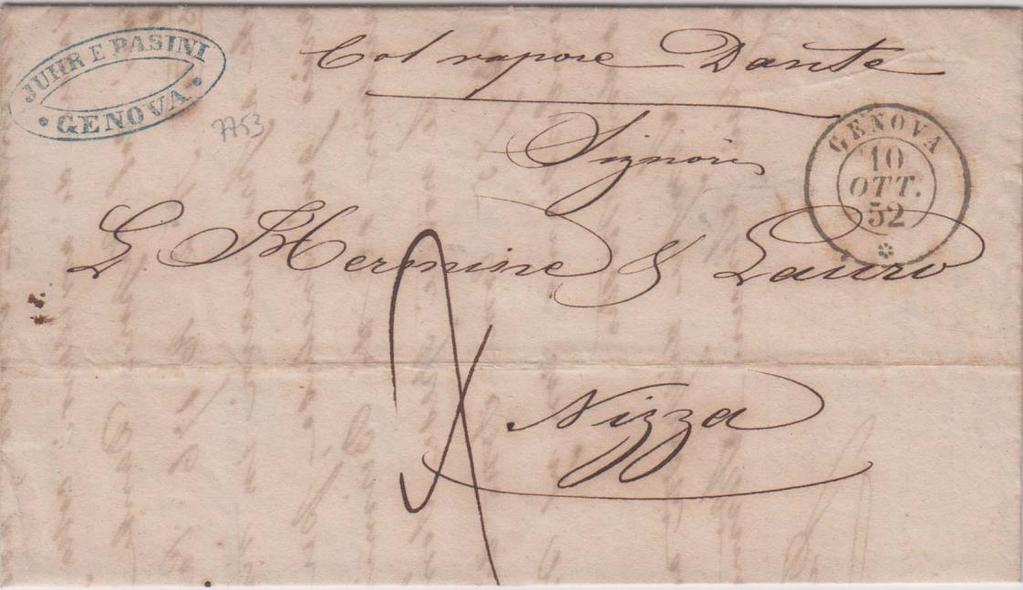 JUHR E PASINI
GENOVA
7753
Col vapore Dante
Signori
GENOVA
10
OTT.
52
L Mermine & Lauro
Nizza